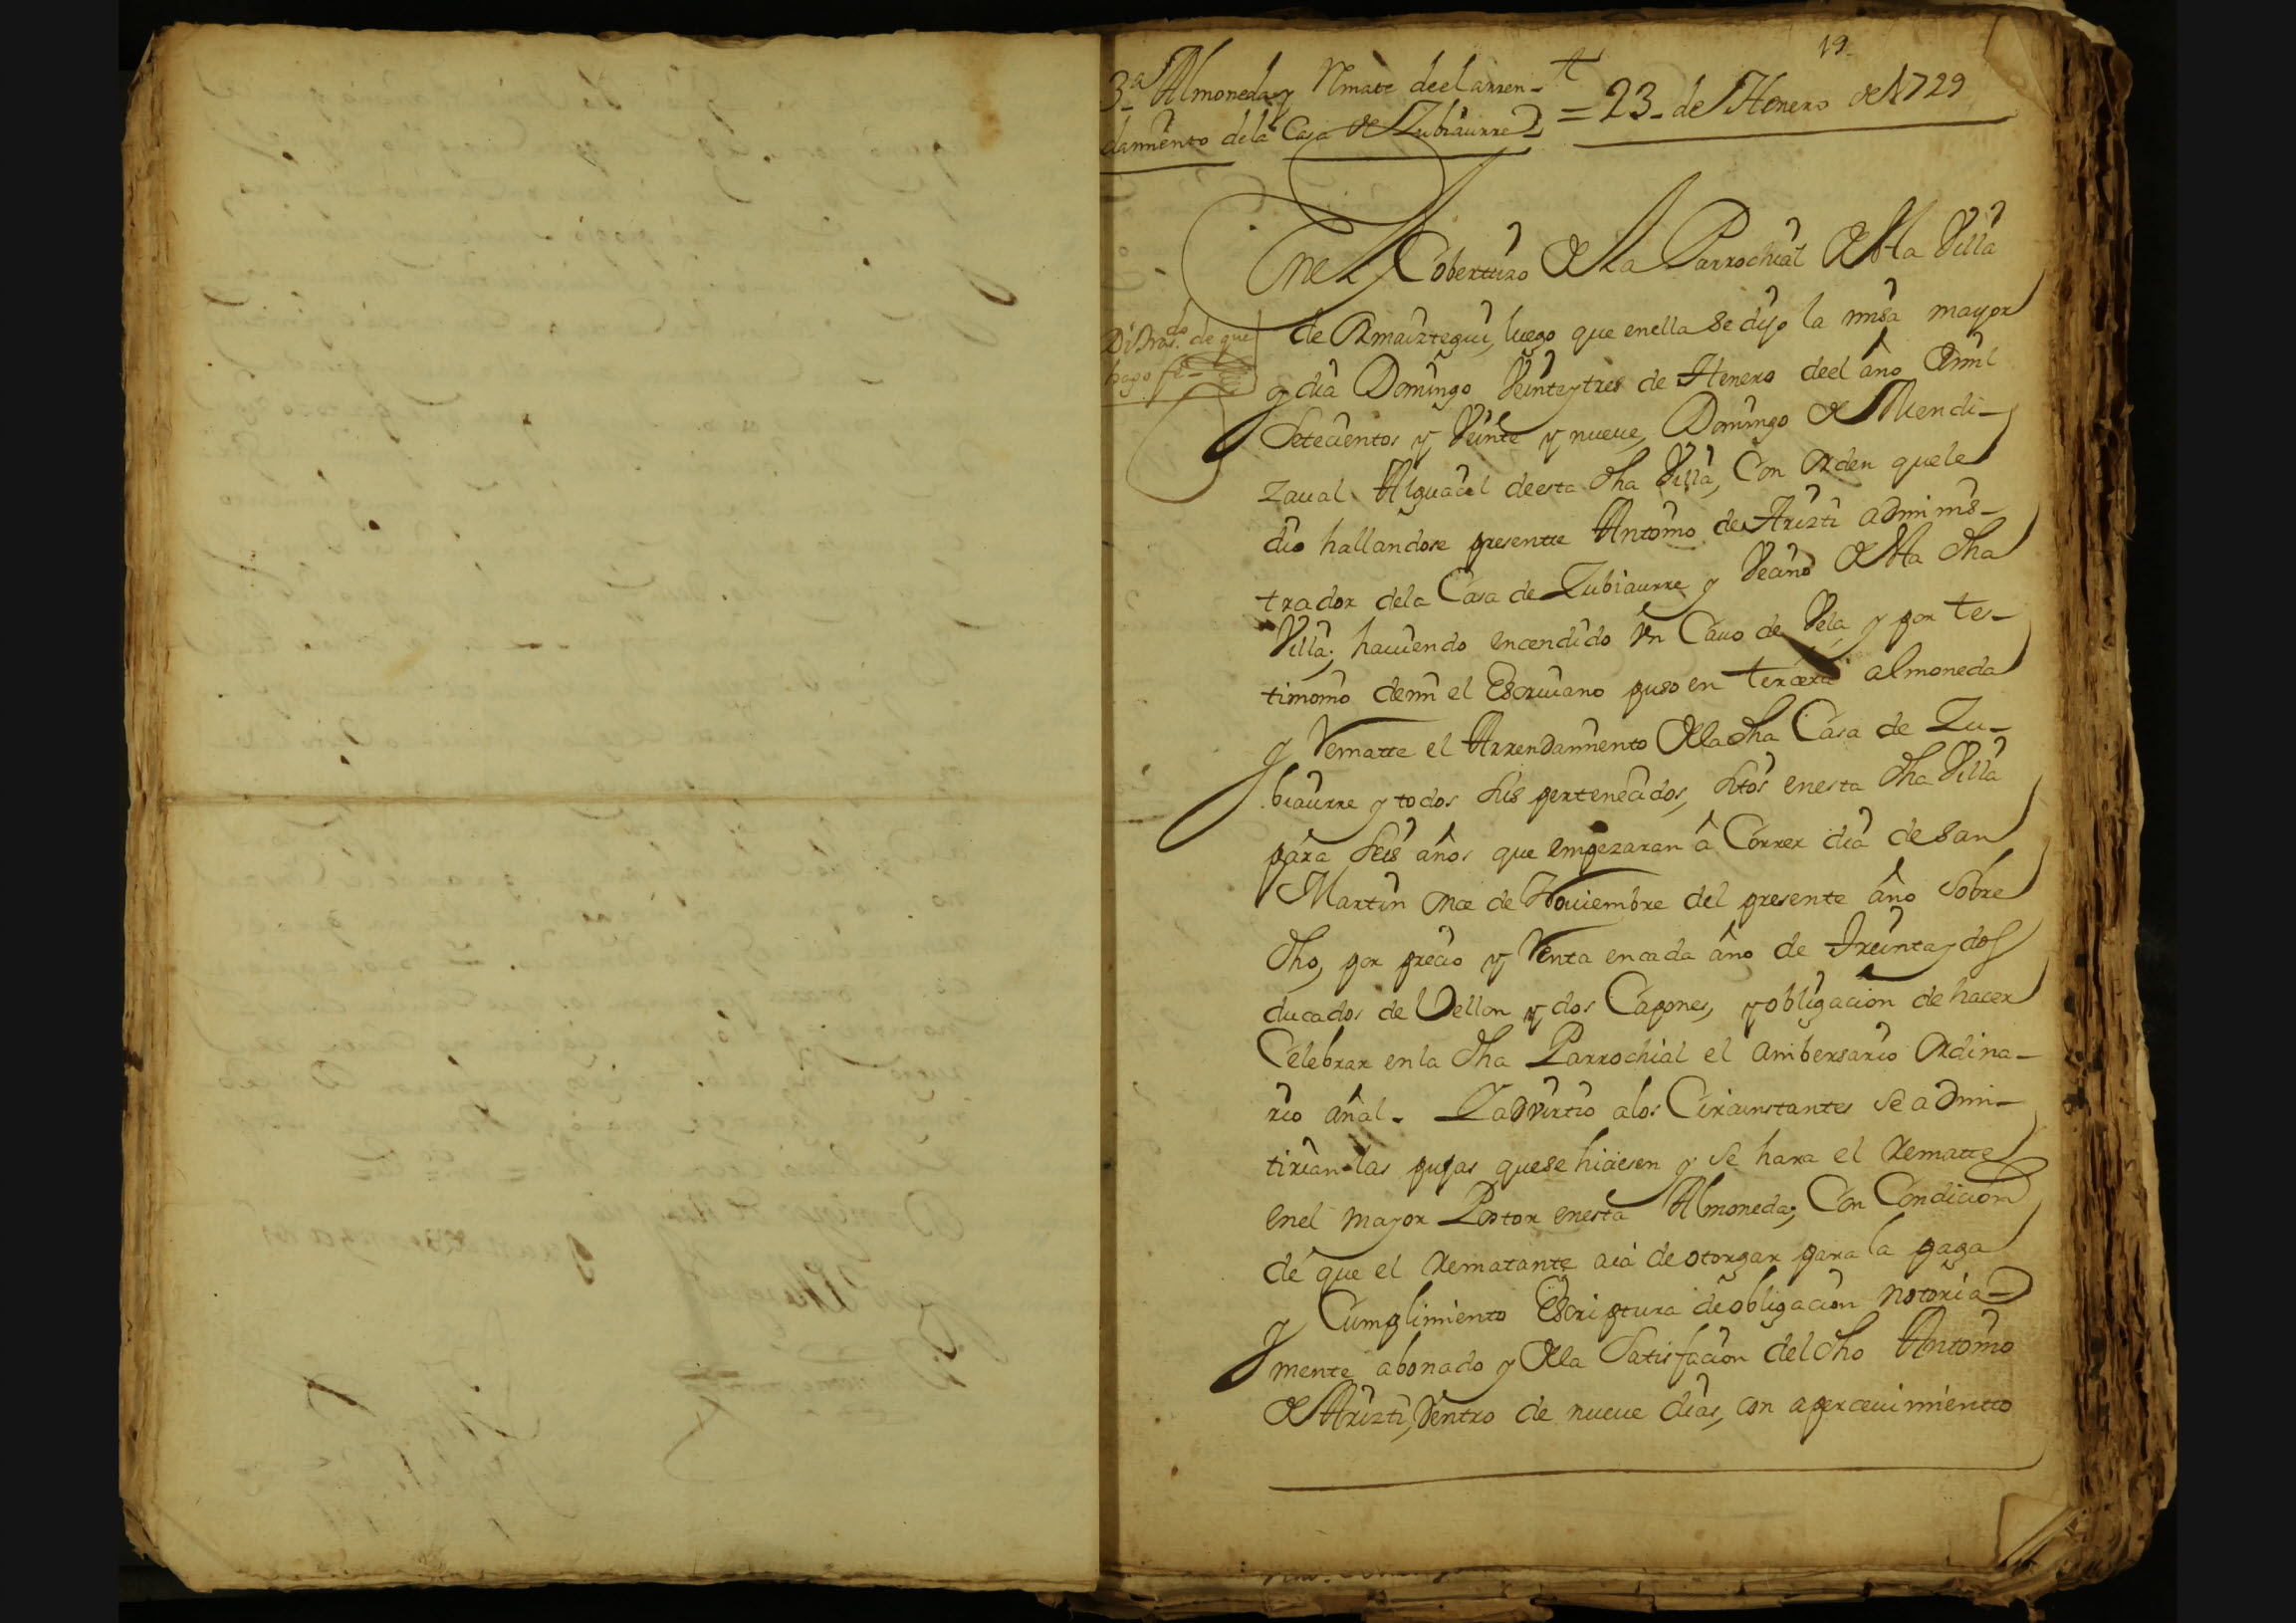 19
3.ª Almoneda y Rmate deel arren-
damiento dela Casa de Zubiaurre
= 23 de Henero de 1729
En el Coberturo de la Parrochial de sta Villa
de Ormaiztegui, luego que enella se dijo la misa mayor
y dia Domingo Veinte y tres de Henero deel año de mil
Setecientos y Veinte y nueue, Domingo de Mendi-
zaual Alguacil deesta dha Villa, Con orden quele
dio hallandose presentte Antonio de Arizti adminis-
trador dela Casa de Zubiaurre y Vecino de sta dha
Villa; hauiendo encendido Vn Cauo de Vela, y por tes-
timonio demi el Escriuano puso en tercera almoneda
y Rematte el Arrendamiento de la dha Casa de Zu-
biaurre y todos sus pertenecidos, sitos enesta dha Villa
para seis años que empezaran â Correr dia de San
Martin once de Nouiembre del presente año Sobre
dho, por precio y Renta encada año de treinta y dos
ducados de Vellon y dos Capones, y obligacion de hacer
Celebrar enla dha Parrochial el anibersario ordina-
rio añal. Y advirtio alos Circunstantes se admi-
tirian las pujas quese hiciesen y se hara el Rematte
enel mayor Postor enesta Almoneda; Con Condicion
de que el Rematante aia de otorgar para la paga
y Cumplimiento Escriptura deobligacion notoria-
mente abonado y de la Satisfacion del dho Antonio
de Arizti, Dentro de nueue dias, con aperceuimiento
Di tras.do de que
hago fe